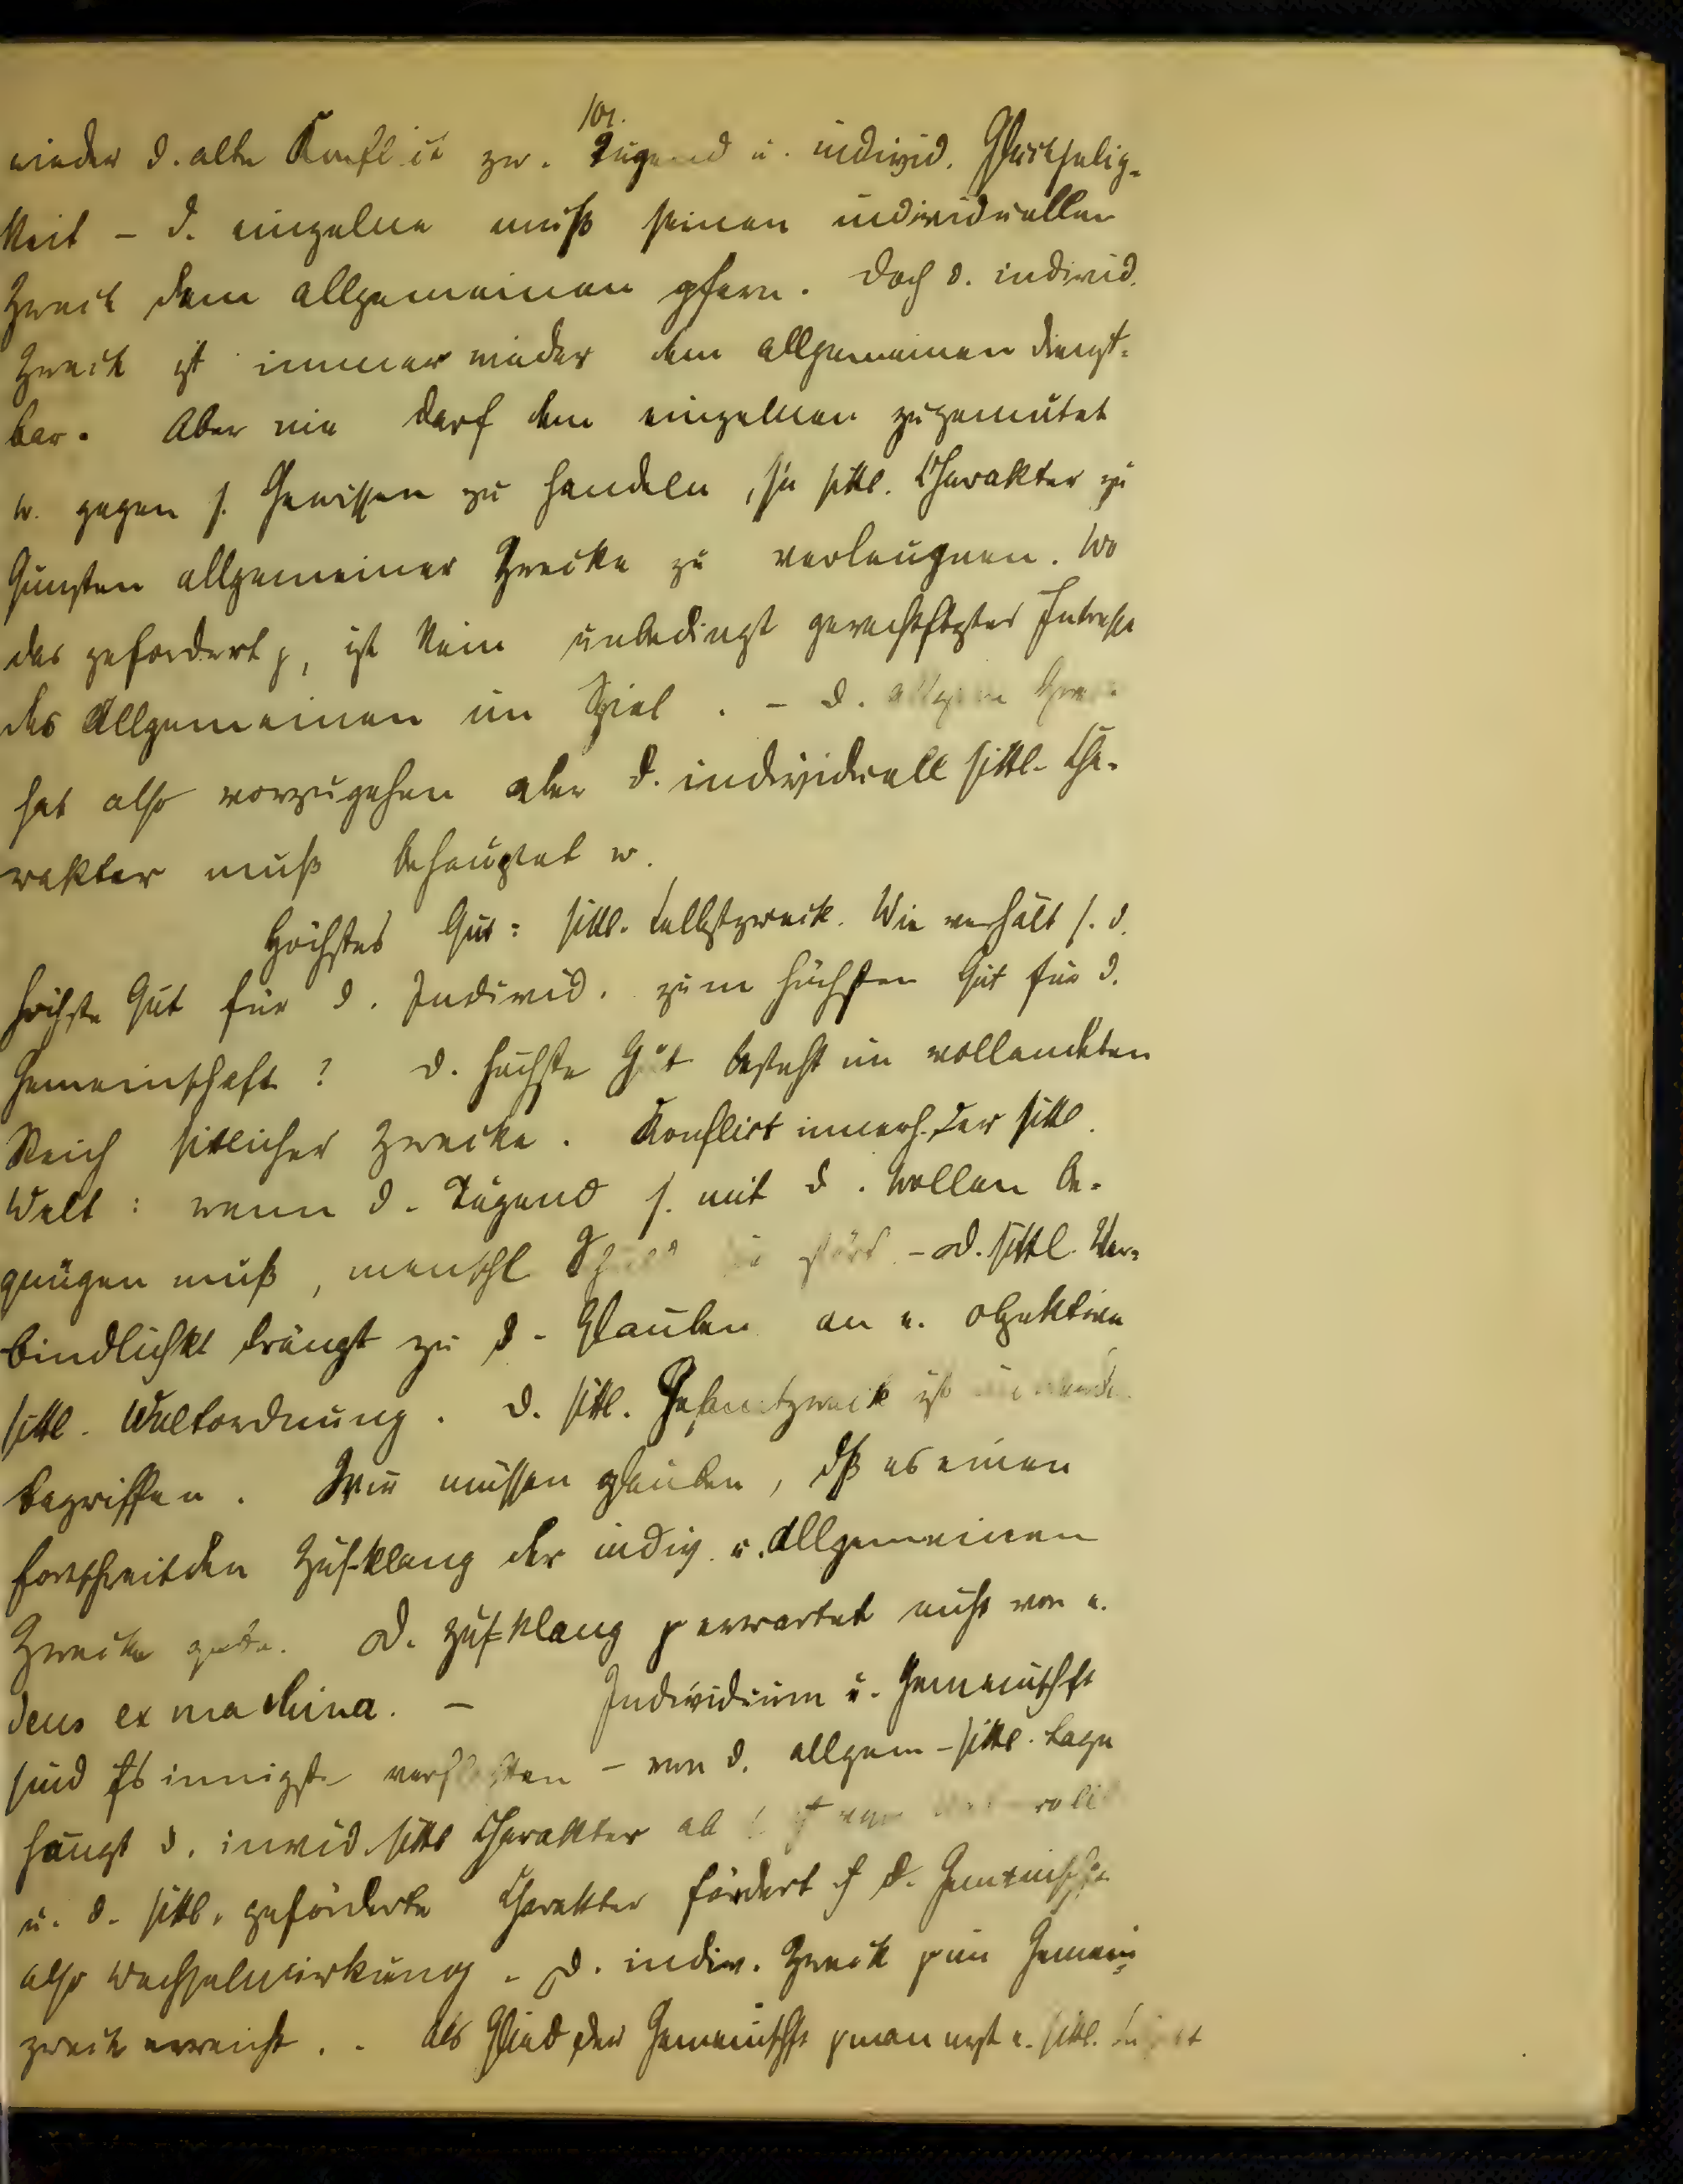 101.
wieder d. alte Konflict zw. Tugend u. individ. Glückselig-
keit – d. einzelne muß seinen individuellen
Zweck dem allgemeinen opfern. Doch d. individ.
Zweck ist immer wieder dem allgemeinen dienst-
bar. Aber nie darf dem einzelnen zugemutet
w. gegen s. Gewissen zu handeln, sn sittl. Charakter zu
Gunsten allgemeiner Zwecke zu verleugnen. Wo
das gefordert, ist kein unbedingt gerechtfgtes Intresse
des Allgemeinen im Spiel. – D. allgem Zweck
hat also vorzugehen aber d. individuell sittl. Cha-
rakter muß behauptet w.
Höchstes Gut: sittl. Selbstzweck. Wie verhält s. d.
höchste Gut für d. Individ. zum höchsten Gut für d.
Gemeinschaft? D. höchste Gut besteht im vollendeten
Reich sittlicher Zwecke. Konflict innerh. der sittl.
Welt: wenn d. Tugend s. mit d. Wollen be-
gnügen muß, menschl. stört – D. sittl. Ver-
bindlichkt drängt zu d. Glauben an e. objektive
sittl. Weltordnung. D. sittl. Gesamtzweck ist
begriffen. Wir müssen glauben, dß es einen
fortschreitden Zus.klang der indiv. u. Allgemeinen
Zwecke gebe. D. Zus.klang erwartet nicht von e.
deus ex machina. – Individuum u. Gemeinschft
sind aufs innigste verflochten – von d. allgem-sittl. Lage
hängt d. invid. sittl Charakter ab
u. d. sittl. geförderte Charakter fördert d. Gemeinschft
also Wechselwirkung. D. indiv. Zweck im Gemein-
zweck erreicht. . Als Glied der Gemeinschft man erst e. sittl.